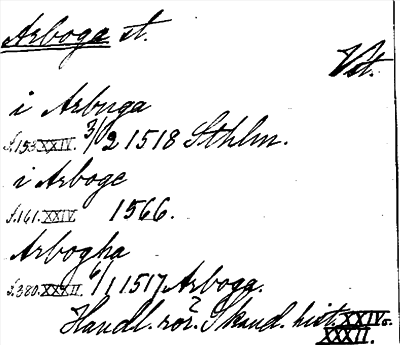 Arboga st.
Vst.
i Arbuga
s. 153 XXIV. 3/6 2 1518 Sthlm.
i Arboge
s. 161. XXIV. 1566.
Arbogha
s. 380. XXXII. 6/1 1517 Arboga.
Handl. rör. Skand. hist. XXIV o.
XXXII.